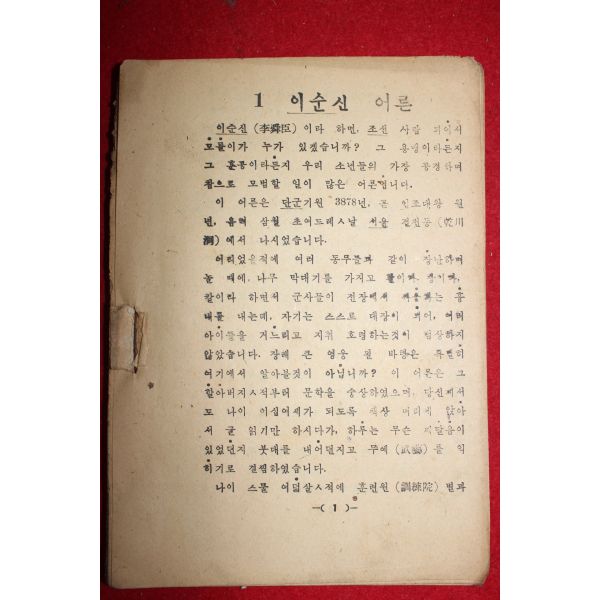 1 이순신 어른
이순신 (李舜臣) 이라 하면, 조선 사람 되어서
모를이가 누가 있겠습니까? 그 용맹이라든지
그 훈공이라든지 우리 소년들의 가장 공경하며
참으로 모범할 일이 많은 어른입니다.
이 어른은 단군기원 3878년, 인조대왕 원
년, 음력 삼월 초여드레ㅅ날 서울 건천동 (乾川
洞) 에서 나시었습니다.
어리었을적에 여러 동무들과 같이 장난하며
놀 때에, 나무 막대기를 가지고 활이라, 창이라,
칼이라 하면서 군사들이 전장에서 싸움하는 흉
내를 내는데, 자기는 스스로 대장이 되어, 여러
아이들을 거느리고 지휘 호령하는것이 범상하지
않았습니다. 장래 큰 영웅 될 바탕은 특별히
여기에서 알아볼것이 아닙니까? 이 어른은 그
할아버지ㅅ적부터 문학을 숭상하였으며, 당신께서
도 나이 이십여세가 되도록 책상 머리에 앉아
서 글 읽기만 하시다가, 하루는 무슨 깨달음이
있었던지 붓대를 내어던지고 무예 (武藝) 를 익
히기로 결찜하였습니다.
나이 스물 여덟살ㅅ적에 훈련원 (訓練院) 별과
—( 1 )—